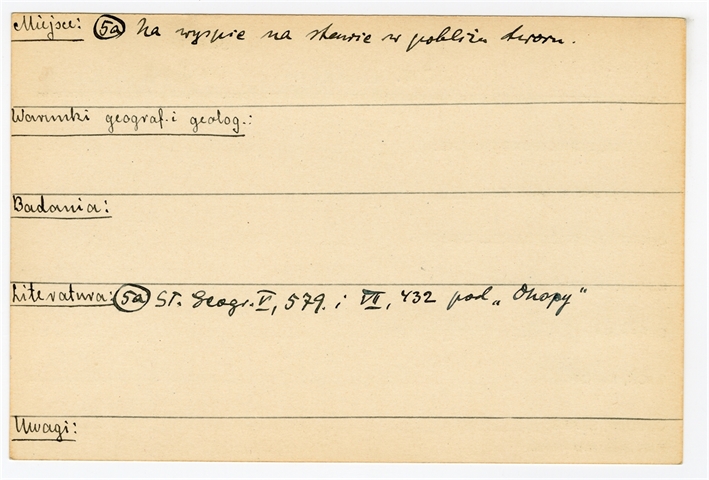 Miejsce: 5a Na wyspie na stawie w pobliżu dworu.
Warunki geograf. i geolog.:
Badania:
Literatura: 5a Sł. Geogr. V, 579. i VII, 432 pod „Okopy”
Uwagi: